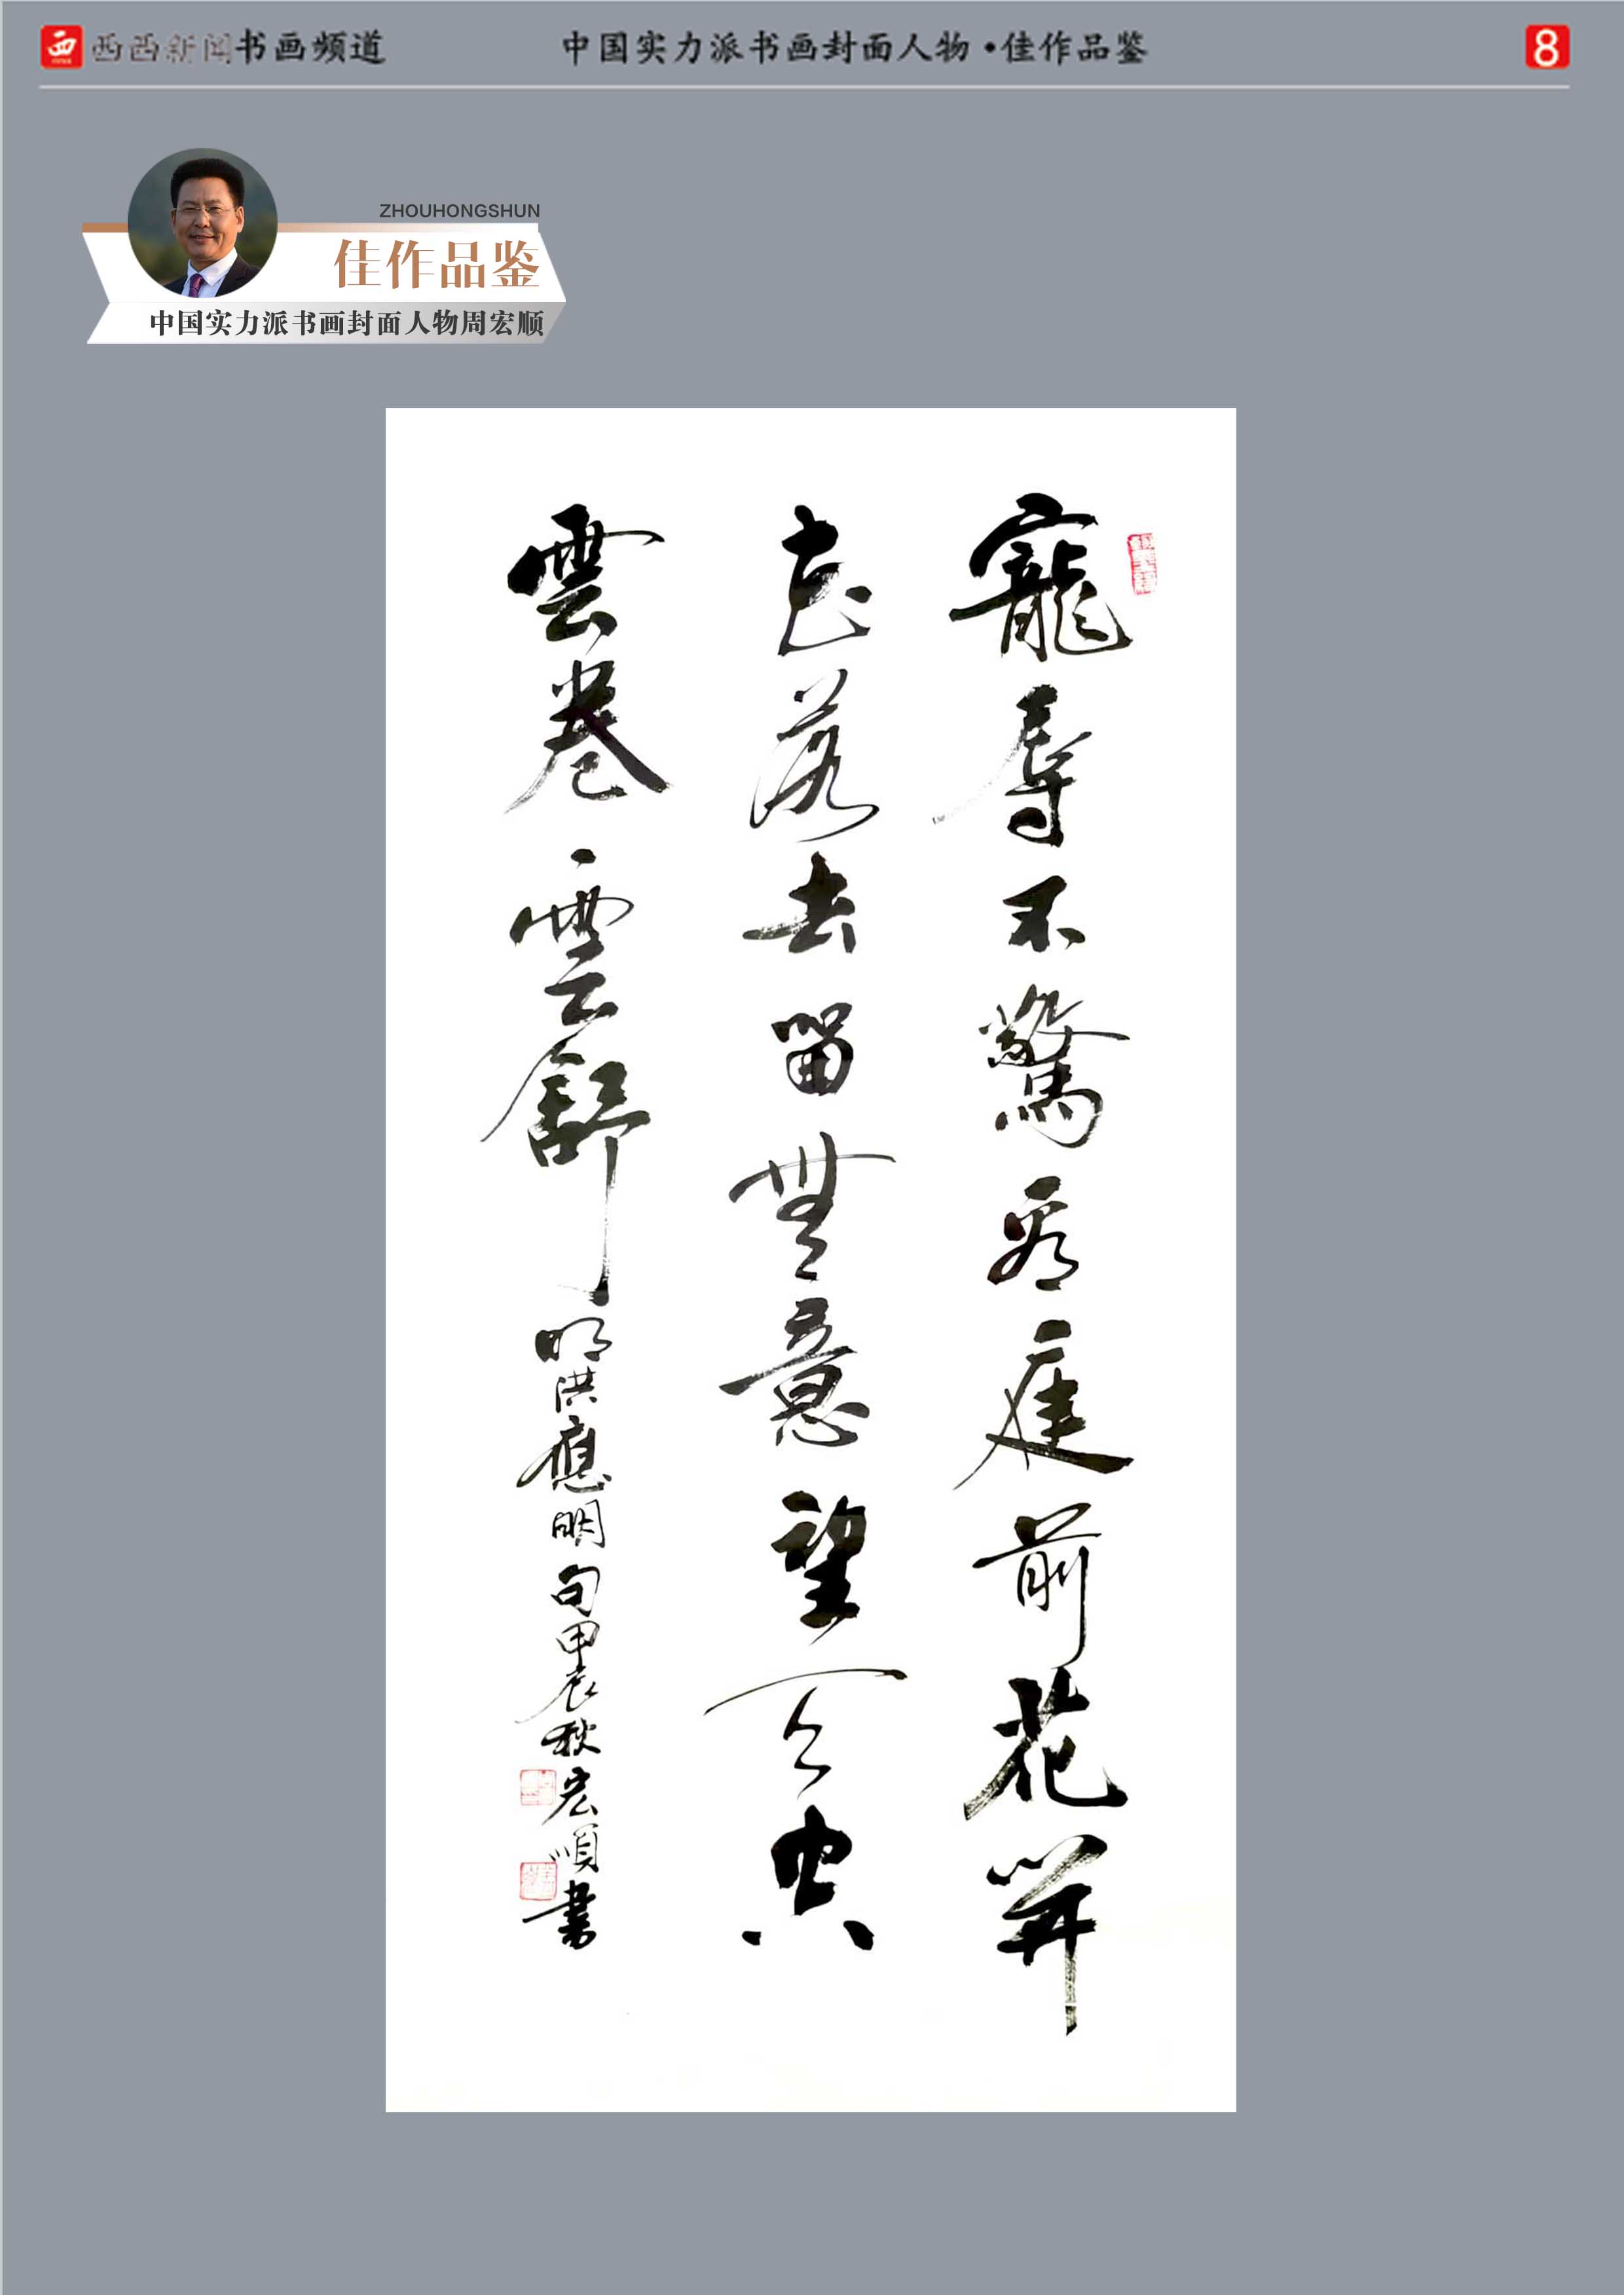 西 西西新闻书画频道
中国实力派书画封面人物•佳作品鉴
8
ZHOUHONGSHUN
佳作品鉴
中国实力派书画封面人物周宏顺
寵辱不驚看庭前花開
花落去留無意望天空
雲卷雲舒 明洪應明句甲辰秋宏順書